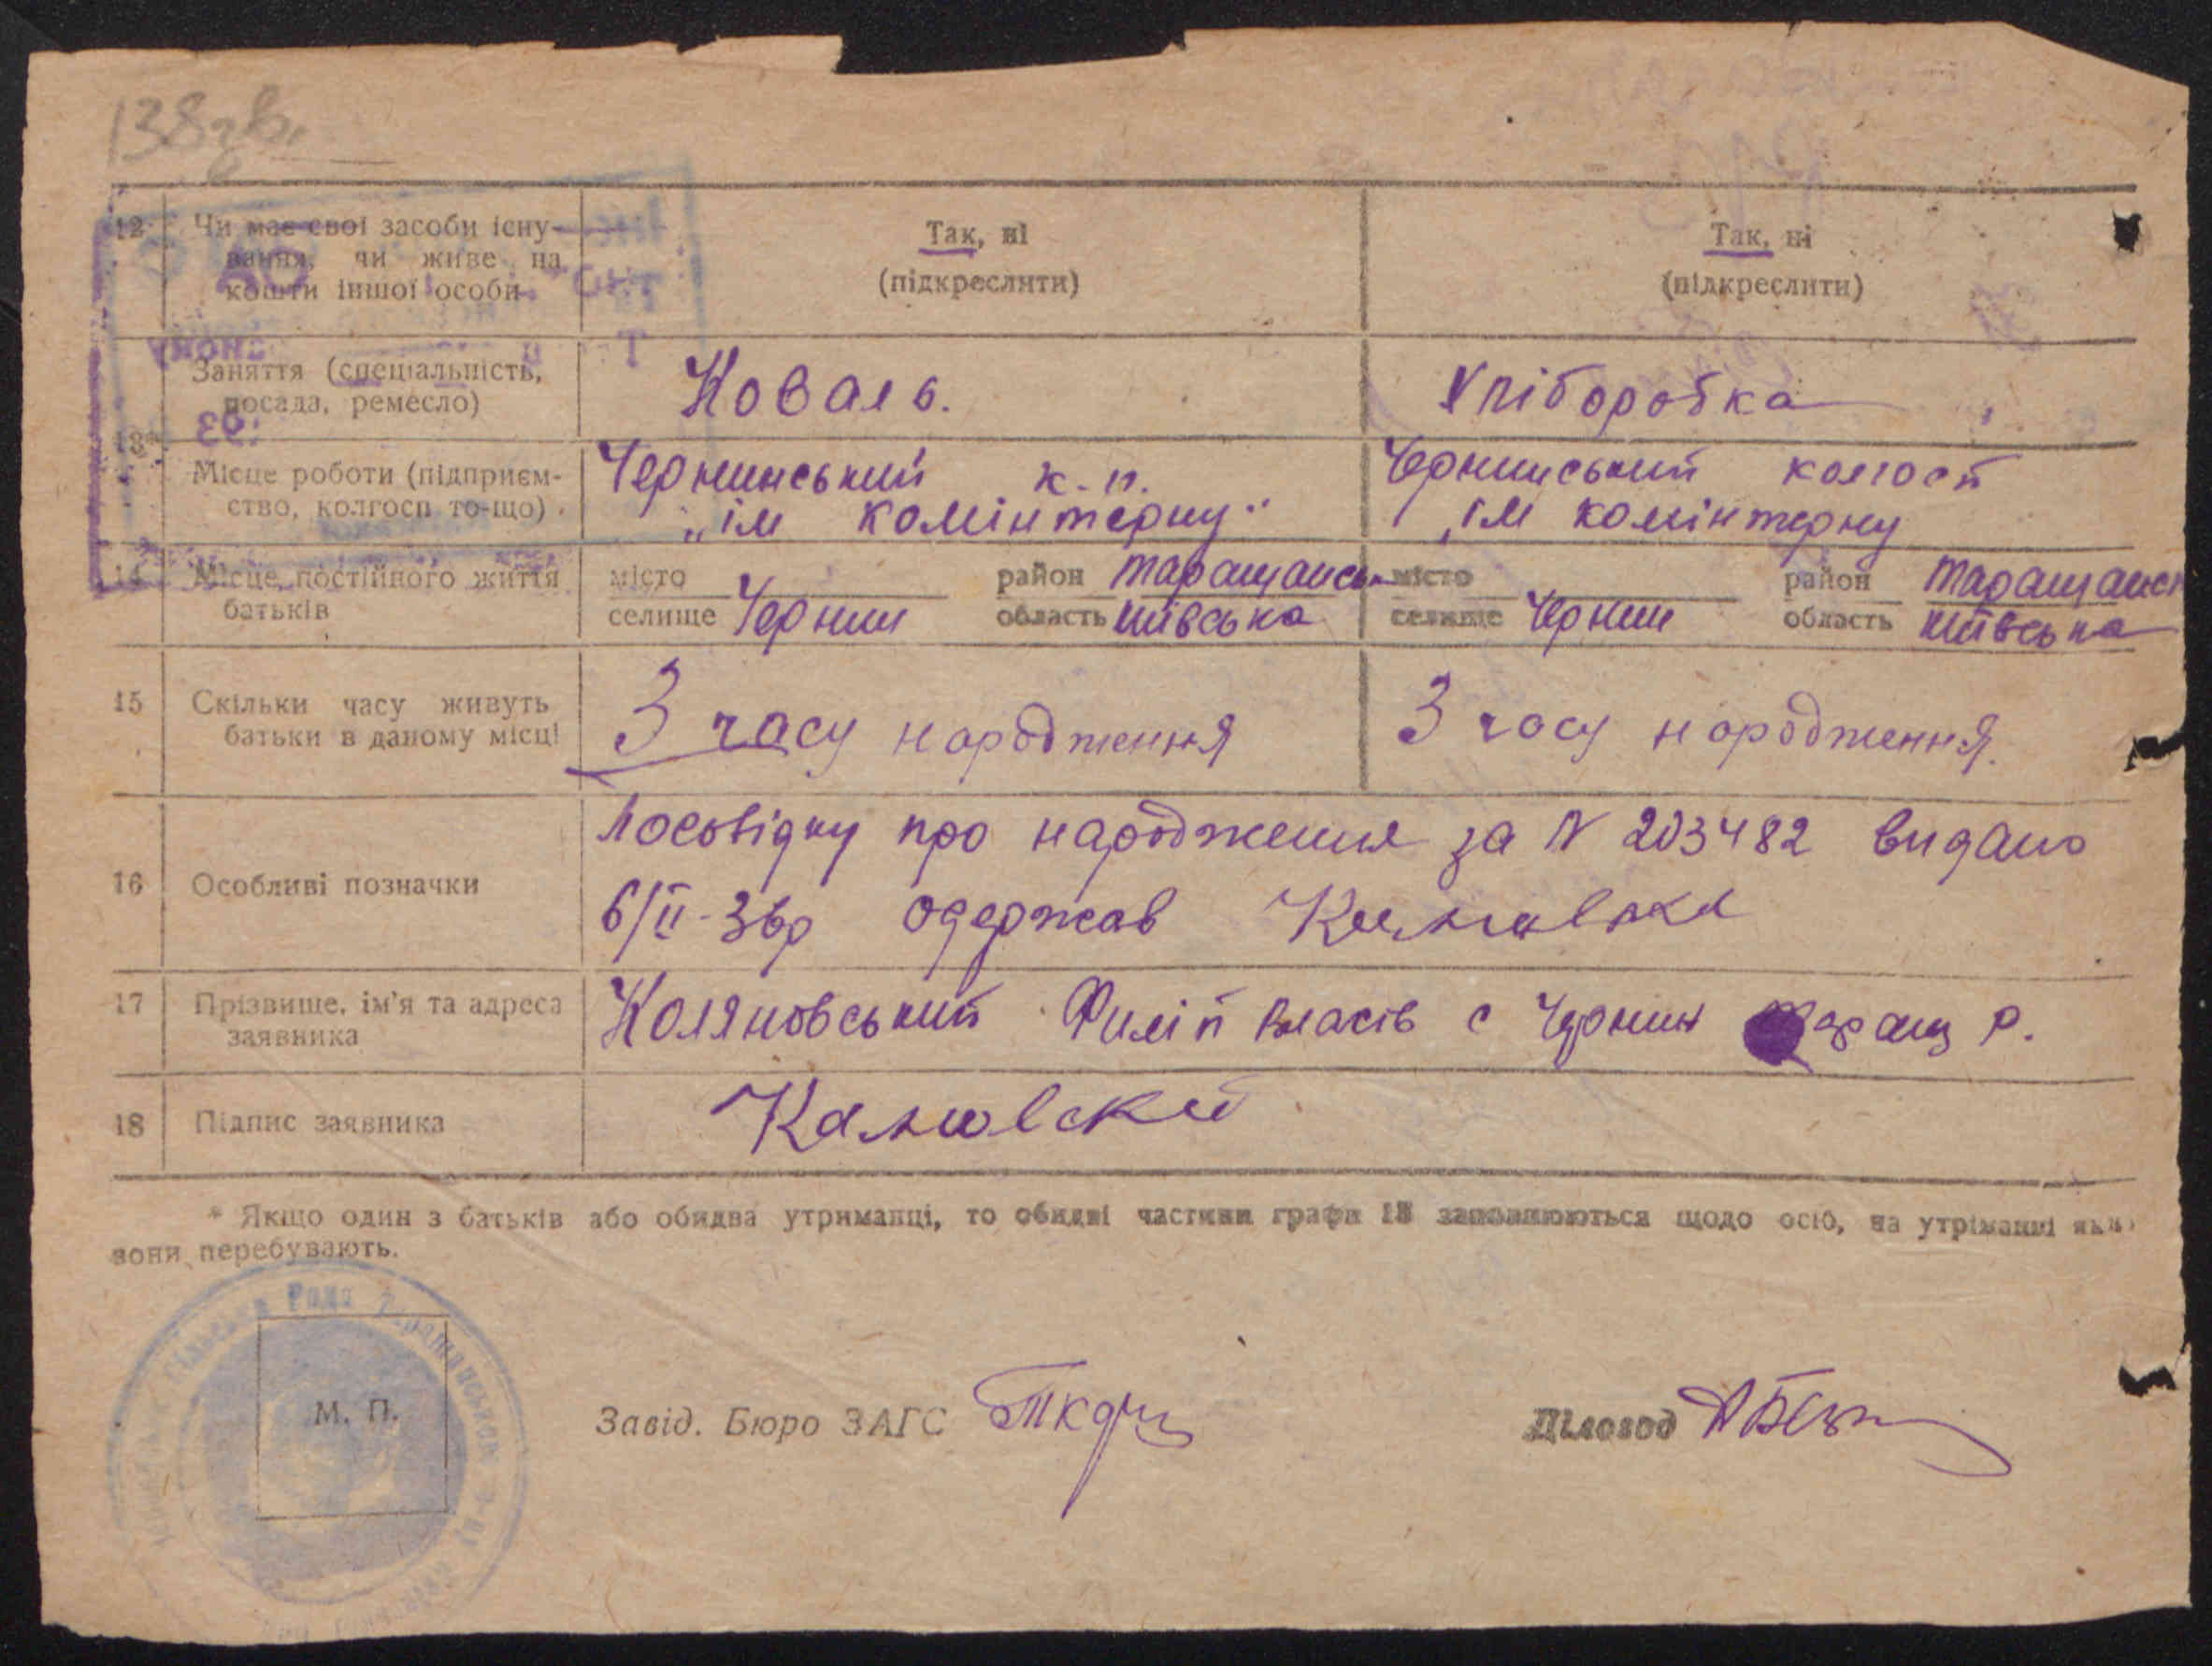 138 зв.
12 Чи має свої засоби існу-
вання, чи живе на
кошти іншої особи
Так, ні
(підкреслити)
Так, ні
(підкреслити)
13*
Заняття (спеціальність,
посада, ремесло)
Коваль.
Хліборобка
Місце роботи (підприєм-
ство, колгосп то-що)
Чернинський к.г.
„ім комінтерну"
Чернинський колгосп
„ім комінтерну
14 Місце постійного життя
батьків
місто район Таращанськ
селище Чернин область Київська
місто район Таращанськ
селище Чернин область Київська
15 Скільки часу живуть
батьки в даному місці
З часу народження
З часу народження.
16 Особливі позначки
Посвідку про народження за N 203482 видано
6/II-36р одержав
17 Прізвище, ім'я та адреса
заявника
Коляновський Филіп Власів с Чернин Таращ р.
18 Підпис заявника
* Якщо один з батьків або обидва утриманці, то обидві частини графи 13 заповнюються щодо осіб, на утриманні яких
вони перебувають.
Сільська Рада Таращанського р-ну
М. П.
Завід. Бюро ЗАГС
Діловод